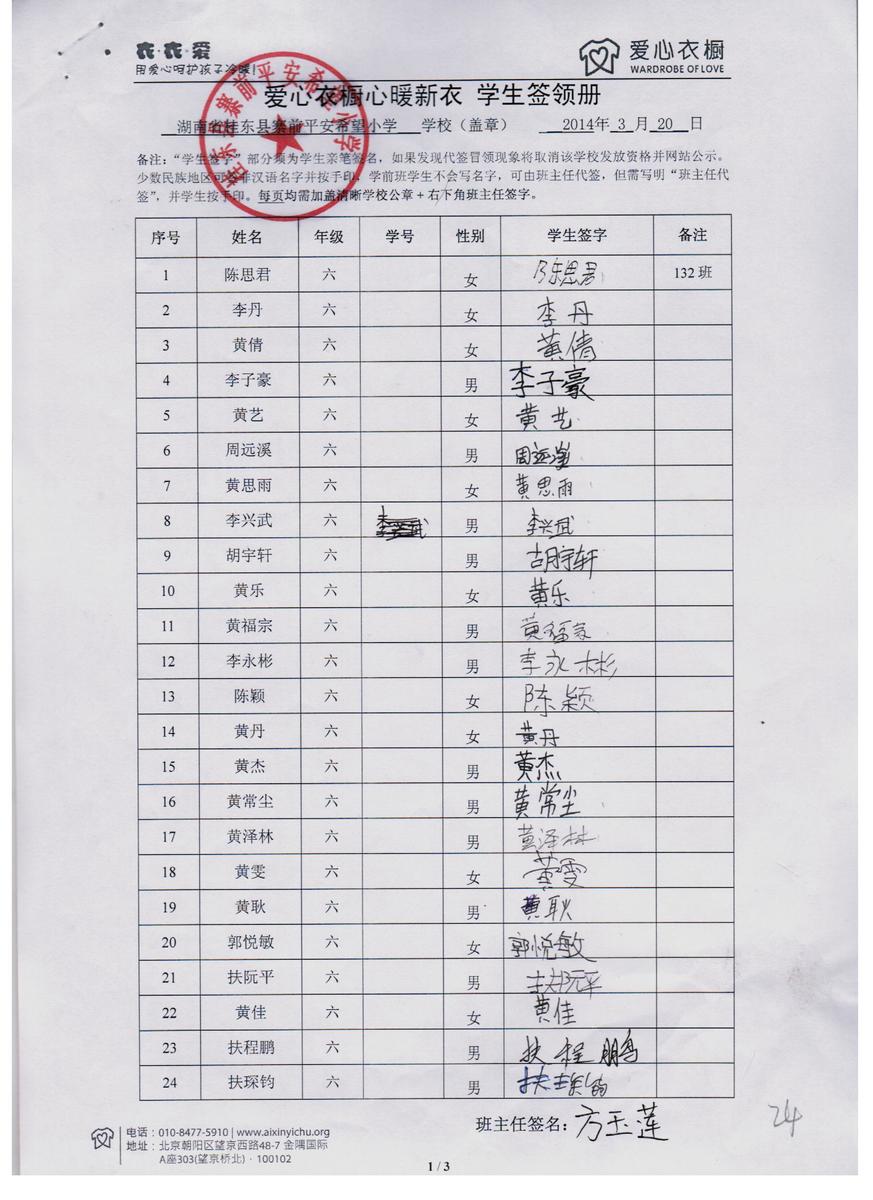 衣·衣·爱
用爱心呵护孩子冷暖!
爱心衣橱
WARDROBE OF LOVE
爱心衣橱心暖新衣 学生签领册
湖南省桂东县寨前平安希望小学 学校(盖章) 2014年 3 月 20 日
桂东县寨前平安希望小学
备注:“学生签字”部分须为学生亲笔签名,如果发现代签冒领现象将取消该学校发放资格并网站公示。
少数民族地区可签非汉语名字并按手印。学前班学生不会写名字,可由班主任代签,但需写明“班主任代
签”,并学生按手印。每页均需加盖清晰学校公章+右下角班主任签字。
序号 姓名 年级 学号 性别 学生签字 备注
1 陈思君 六 女 陈思君 132 班
2 李丹 六 女 李丹
3 黄倩 六 女 黄倩
4 李子豪 六 男 李子豪
5 黄艺 六 女 黄艺
6 周远溪 六 男 周远溪
7 黄思雨 六 女 黄思雨
8 李兴武 六 李兴武 男 李兴武
9 胡宇轩 六 男 胡宇轩
10 黄乐 六 女 黄乐
11 黄福宗 六 男 黄福宗
12 李永彬 六 男 李永彬
13 陈颖 六 女 陈颖
14 黄丹 六 女 黄丹
15 黄杰 六 男 黄杰
16 黄常尘 六 男 黄常尘
17 黄泽林 六 男 黄泽林
18 黄雯 六 女 黄雯
19 黄耿 六 男 黄耿
20 郭悦敏 六 女 郭悦敏
21 扶阮平 六 男 扶阮平
22 黄佳 六 女 黄佳
23 扶程鹏 六 男 扶程鹏
24 扶琛钧 六 男 扶琛钧
班主任签名: 方玉莲
24
电话:010-8477-5910 | www.aixinyichu.org
地址:北京朝阳区望京西路48-7 金隅国际
A座303(望京桥北)·100102
1 / 3